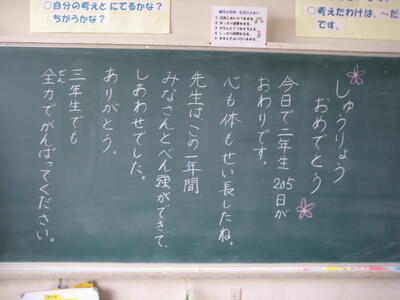 ○自分の考えとにてるかな？
ちがうかな？
○考えたわけは、～だ
です。
しゅうりょう
おめでとう
今日で二年生 205日が
おわりです。
心も体もせい長したね。
先生は、この一年間、
みなさんとべん強ができて、
しあわせでした。
ありがとう。
三年生でも
全力でがんばってください。
ぜん